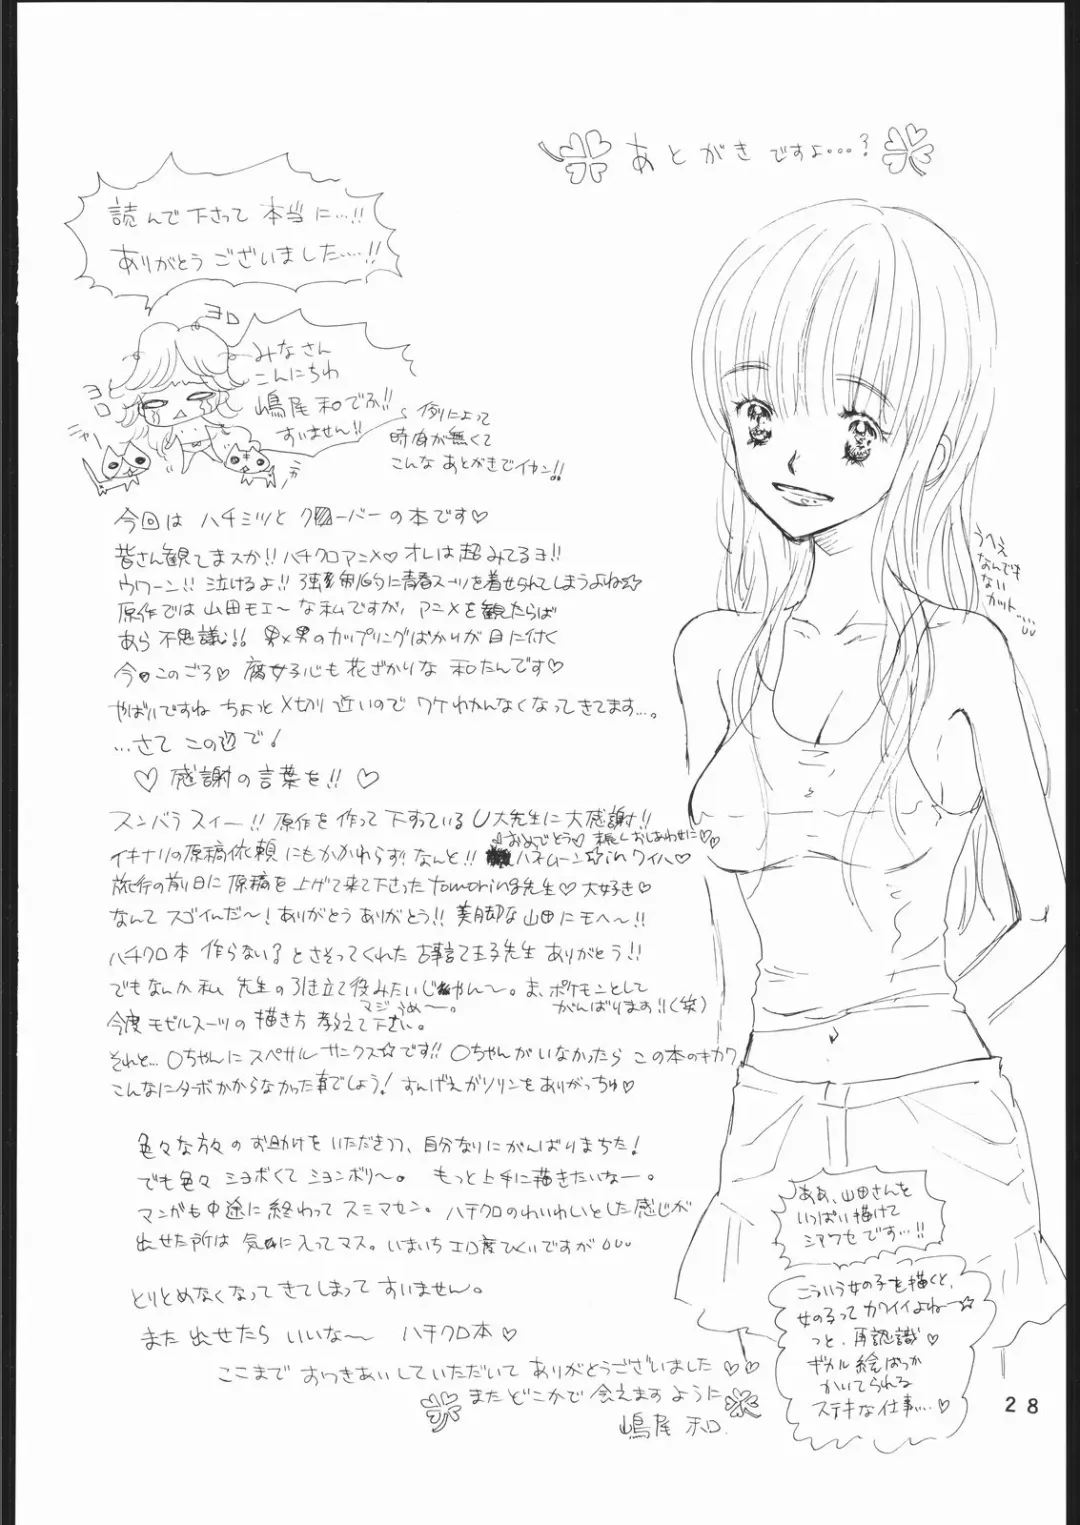 あとがきですよ…?
読んで下さって 本当に…!!
ありがとうございました……!!
ヨロ
ヨロ
みなさん
こんにちわ
嶋尾 和でふ!!
すいません!!
ニャー
例によって
時間が無くて
こんな あとがきでイカン!!
今回は ハチミツと クローバーの本です♡
皆さん観てますか!! ハチクロアニメ♡ オレは超みてるヨ!!
ウワーン!! 泣けるよ!! 強制的に青春スーツを着せられてしまうよね☆
原作では 山田モエ〜な私ですが、アニメを観たらば
あら 不思議!! 男×男のカップリングばかりが 目に付く
今このごろ♡ 腐女子心も花ざかりな 和たんです♡
やばいですね ちょっと〆切り近いので ワケわかんなくなってきてます…。
…さて この辺で!
♡ 感謝の言葉を!! ♡
スンバラスィー!! 原作を作って下すっているU大先生に大感謝!!
おめでとう♡ 末長くおしあわせに♡♡
イキナリの原稿依頼にもかかわらず!なんと!! ハネムーン in ワイハ♡
旅行の前日に原稿を上げて来て下さったtomoring先生♡ 大好き♡
なんてスゴイんだ〜! ありがとうありがとう!! 美脚な山田にモヘ〜!!
ハチクロ本 作らない? とさそってくれた 古事言て王子先生 ありがとう!!
でもなんか私 先生の引き立て役みたいじゃん〜。ま、ポケモンとして
がんばります!!(笑)
マジうめ〜。
今度 モビルスーツの 描き方 教えて下さい。
それと… ○ちゃんに スペサル サンクス☆です!! ○ちゃんがいなかったら この本のキカク
こんなにターボかからなかった事でしょう! すんげえガソリンをありがっちゅ♡
色々な方々の お助けをいただきつつ、自分なりにがんばりまちた!
でも色々 ショボくて ションボリ〜。 もっと上手に描きたいなー。
マンガも中途に終わって スミマセン。ハチクロのわいわいとした感じが
出せた所は 気に入ってマス。いまいち エロ度ひくいですが
とりとめなくなってきてしまって すいません。
また 出せたら いいな〜 ハチクロ本♡
ここまで おつきあいしていただいて ありがとうございました♡♡
またどこかで会えますように
嶋尾 和
うへえ
なんでも
ない
カット…
ああ、山田さんを
いっぱい描けて
シアワセです…!!
こういう女の子を描くと、
女の子ってカワイイよねー☆
っと、再認識♡
ギガル絵ばっか
かいてられる
ステキな仕事…♡
28